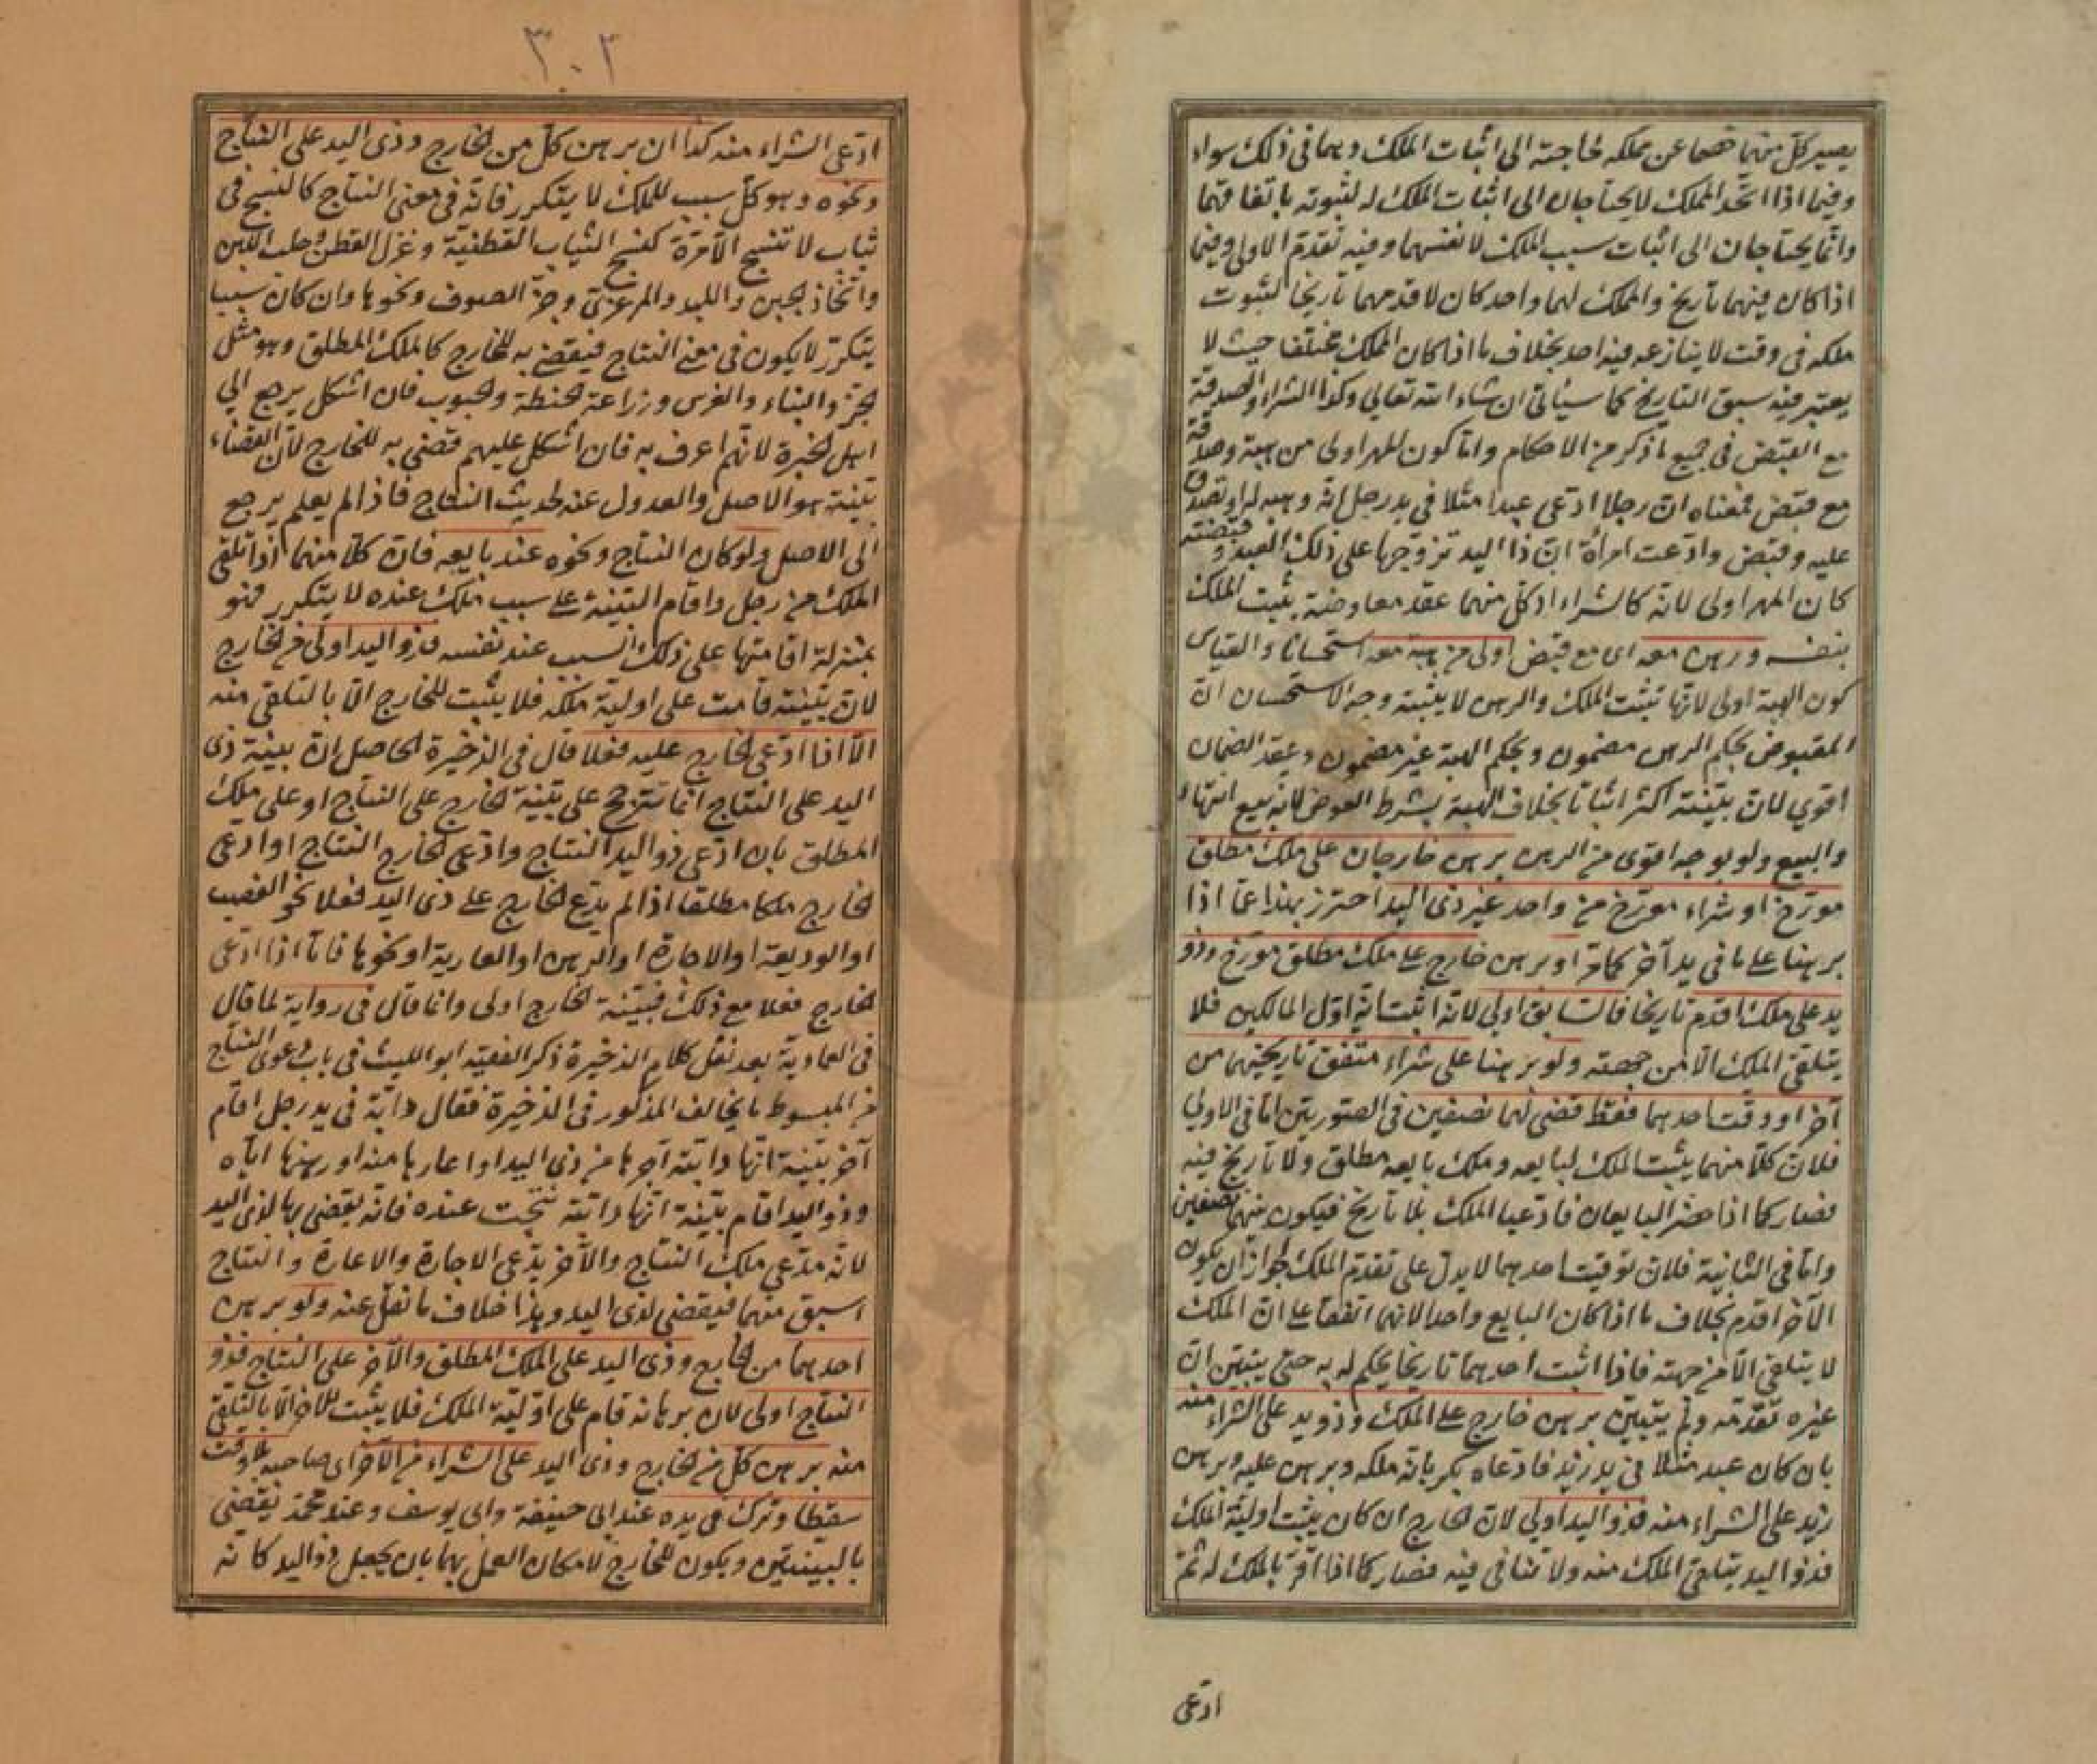 يصير كل منهما خصما عن مملكه لحاجته الى اثبات الملك وهما فى ذلك سواء
وفيما اذا اتحد المملك لا يحتاجان الى اثبات الملك له لثبوته باتفاقهما
وانما يحتاجان الى اثبات سبب الملك لانفسهما وفيه تقدم الاولى وفيما
اذا كان فيهما تاريخ والمملك لهما واحد كان لاقدمهما تاريخا لثبوت
ملكه فى وقت لا ينازعه فيه احد بخلاف ما اذا كان المملك مختلفا حيث لا
يعتبر فيه سبق التاريخ كما سيأتى ان شاء الله تعالى وكذا الشراء والصدقة
مع القبض فى جميع ما ذكر من الاحكام واما كون المهر اولى من هبة وصدقة
مع قبض فمعناه ان رجلا ادعى عبدا مثلا فى يد رجل انه وهبه له او تصدق
عليه وقبض وادعت امرأة ان ذا اليد تزوجها على ذلك العبد وقبضته
كان المهر اولى لانه كالشراء اذ كل منهما عقد معاوضة يثبت الملك
بنفسه ورهن معه اى مع قبض اولى من هبة معه استحسانا والقياس
كون الهبة اولى لانها تثبت الملك والرهن لا يثبته وجه الاستحسان ان
المقبوض بحكم الرهن مضمون وبحكم الهبة غير مضمون وعقد الضمان
اقوي لان بينته اكثر اثباتا بخلاف الهبة بشرط العوض لانه بيع انتهاء
والبيع ولو بوجه اقوى من الرهن برهن خارجان على ملك مطلق
مورخ او شراء مورخ من واحد غير ذى اليد احترز بهذا عما اذا
برهنا على ما فى يد آخر كما مر او برهن خارج على ملك مطلق مورخ وذو
يد على ملك اقدم تاريخا فالسابق اولى لانه اثبت انه اول المالكين فلا
يتلقى الملك الا من جهته ولو برهنا على شراء متفق تاريخيهما من
آخر او وقت احدهما فقط قضى لهما نصفين فى الصورتين اما فى الاولى
فلان كلا منهما يثبت الملك لبايعه وملك بايعه مطلق ولا تاريخ فيه
فصار كما اذا حضر البايعان فادعيا الملك بلا تاريخ فيكون بينهما نصفين
واما فى الثانية فلان توقيت احدهما لا يدل على تقدم الملك لجواز ان يكون
الآخر اقدم بخلاف ما اذا كان البايع واحدا لانهما اتفقا على ان الملك
لا يتلقى الا من جهته فاذا اثبت احدهما تاريخا يحكم له به حتى يتبين ان
غيره تقدمه ولم يتبين برهن خارج على الملك وذو يد على الشراء منه
بان كان عبد مثلا فى يد زيد فادعاه بكر بانه ملكه وبرهن عليه وبرهن
زيد على الشراء منه فذو اليد اولى لان الخارج ان كان يثبت اولية الملك
فذو اليد يتلقى الملك منه ولا تنافى فيه فصار كما اذا اقر بالملك له ثم
ادعى
٣٠٢
ادعى الشراء منه كذا ان برهن كل من الخارج وذى اليد على النتاج
ونحوه وهو كل سبب للملك لا يتكرر فانه فى معنى النتاج كالنسج فى
ثياب لا تنسج الا مرة كنسج الثياب القطنية وغزل القطن وحلب اللبن
واتخاذ الجبن واللبد والمرعزى وجز الصوف ونحوها وان كان سببا
يتكرر لا يكون فى معنى النتاج فيقضى به للخارج كالملك المطلق وهو مثل
الخز والبناء والغرس وزراعة الحنطة والحبوب فان اشكل يرجع الى
اهل الخبرة لانهم اعرف به فان اشكل عليهم قضى به للخارج لان القضاء
ببينته هو الاصل والعدول عنه لحديث النتاج فاذا لم يعلم يرجع
الى الاصل ولو كان النتاج ونحوه عند بايعه فان كلا منهما اذا تلقى
الملك من رجل واقام البينة على سبب ملك عنده لا يتكرر فهو
بمنزلة اقامتها على ذلك السبب عند نفسه فذو اليد اولى من الخارج
لان بينته قامت على اولية ملكه فلا يثبت للخارج الا بالتلقى منه
الا اذا ادعى الخارج عليه فعلا قال فى الذخيرة الحاصل ان بينة ذى
اليد على النتاج انما تترجح على بينة الخارج على النتاج او على ملك
المطلق بان ادعى ذو اليد النتاج وادعى الخارج النتاج او ادعى
الخارج ملكا مطلقا اذا لم يدع الخارج على ذى اليد فعلا نحو الغصب
او الوديعة او الاجارة او الرهن او العارية او نحوها فاما اذا ادعى
الخارج فعلا مع ذلك فبينة الخارج اولى وانما قال فى رواية لما قال
فى العمادية بعد نقل كلام الذخيرة ذكر الفقيه ابو الليث فى باب دعوى النتاج
من المبسوط ما يخالف المذكور فى الذخيرة فقال دابة فى يد رجل اقام
آخر بينة انها دابته آجرها من ذى اليد او اعارها منه او رهنها اياه
وذو اليد اقام بينة انها دابته نتجت عنده فانه يقضى بها لذى اليد
لانه مدعى ملك النتاج والآخر يدعى الاجارة والاعارة والنتاج
اسبق منهما فيقضى لذى اليد وهذا خلاف ما نقل عنه ولو برهن
احدهما من الخارج وذى اليد على الملك المطلق والآخر على النتاج فذو
النتاج اولى لان برهانه قام على اولية الملك فلا يثبت للاخر الا بالتلقى
منه برهن كل من الخارج وذى اليد على الشراء من الآخر اى صاحبه بلا وقت
سقطا وترك فى يده عند ابى حنيفة وابى يوسف وعند محمد يقضى
بالبينتين ويكون للخارج لامكان العمل بهما بان يجعل ذو اليد كانه